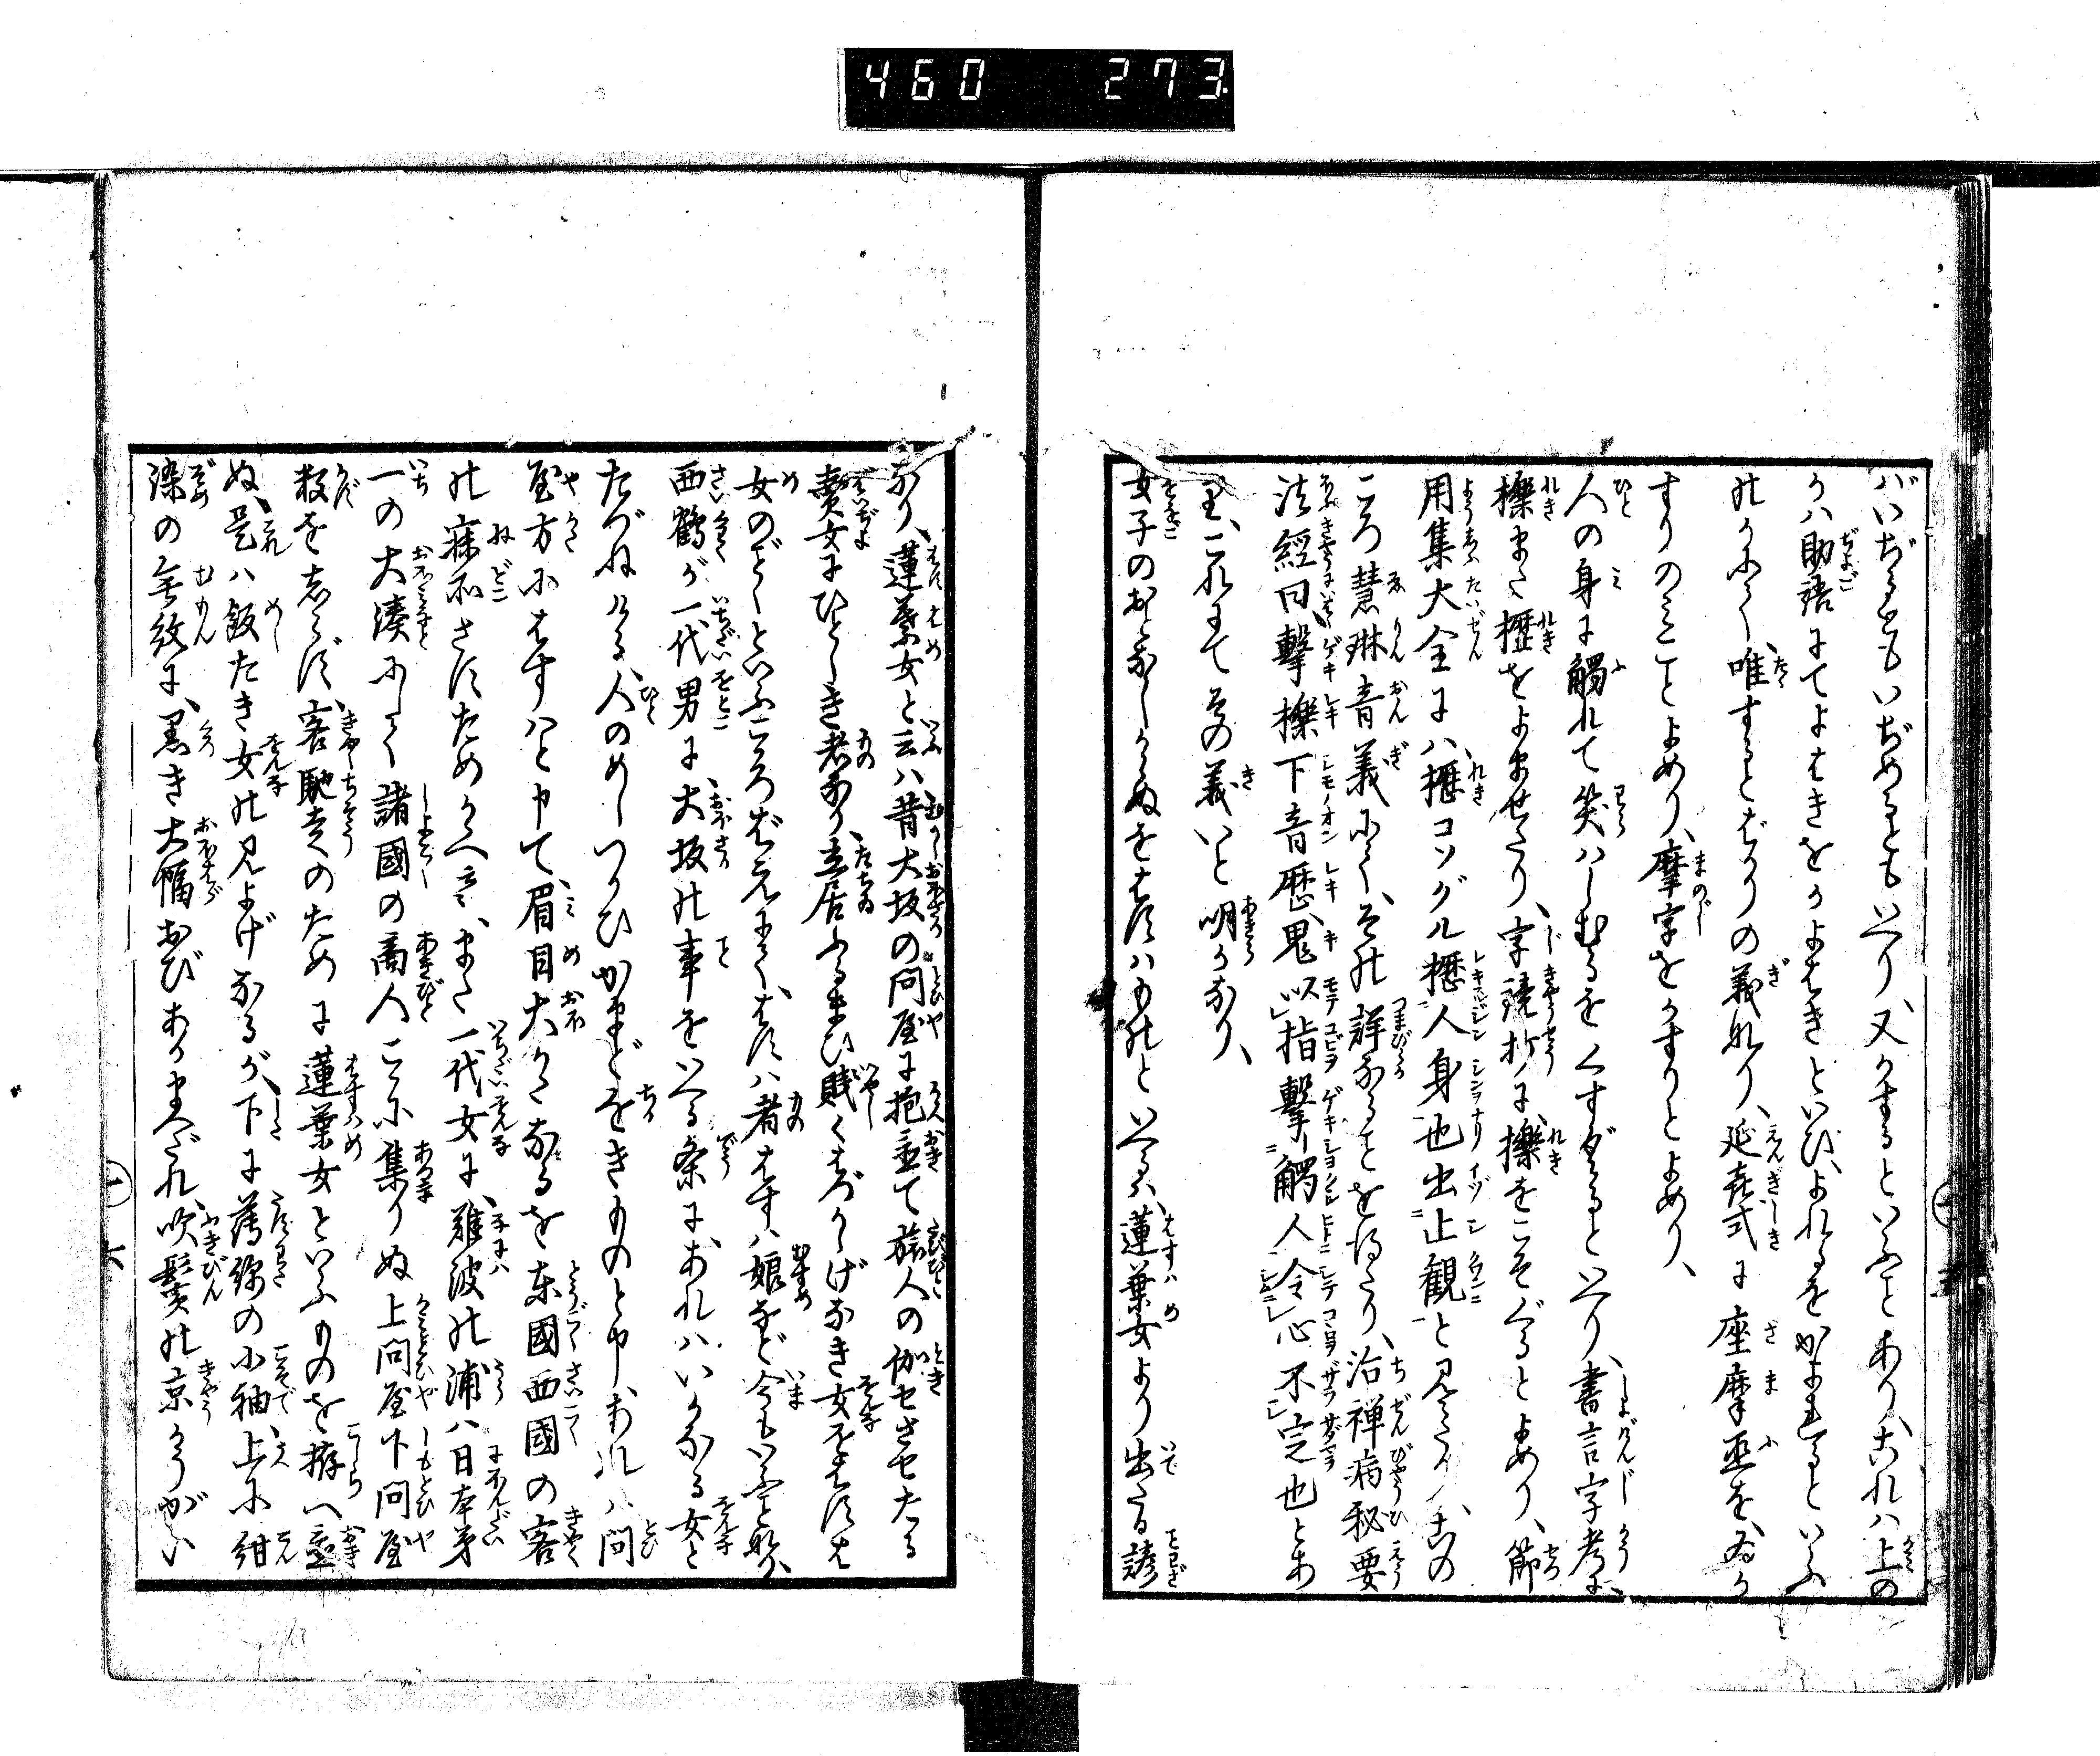 460 273
バいぢるともいぢめるともいへり、又かまるといふことあり、これハ上の
かハ助語にてよはきをかよはきといひ、よれるをかよれるといふ
のかにて、唯するとばかりの義なり、延喜式に座摩巫を、ゐか
すりのみことよめり、摩字をかすりとよめり、
人の身に觸れて笑ハしむるをくすぐるといへり、書言字考に、
擽また攊をよませたり、字鏡抄に擽をこそぐるとよめり、節
用集大全にハ攊コソグル攊人身也出止観と見えたり、このころ
慧琳音義にて、その詳なることを得たり、治禅病秘要
法經曰、撃擽下音歴鬼以指撃觸人令心不定也とあ
り、これにてその義いと明かなり、
女子のおとなしからぬをはすハものといへるハ、蓮葉女より出たる諺
なり、蓮葉女と云ハ昔大坂の問屋に抱置て旅人の伽せさせたる
賣女にひとしき者なり、立居ふるまひ賎くはづかしげなき女をはすは
女のごとくといふころばえにて、はすハ者はすハ娘など今もいふことなり、
西鶴が一代男に、大坂の事をいへる条に、あれハいかなる女と
たづねける、人のめしつかひかまどをきものと申、あれハ問
屋方にはすハと申て、眉目大かたなるを東國西國の客
の寐所さすためかへ云々、また一代女に、難波の浦ハ日本第
一の大湊にして、諸國の商人こゝに集りぬ、上問屋下問屋
数をしらず、客馳走のために蓮葉女といふものを拵へ置
ぬ、是ハ飯たき女の見よげなるが、下に薄綿の小袖、上に紺
染の無紋に、黒き大幅おびあかまへだれ、吹鬢の京かうがい
一 六